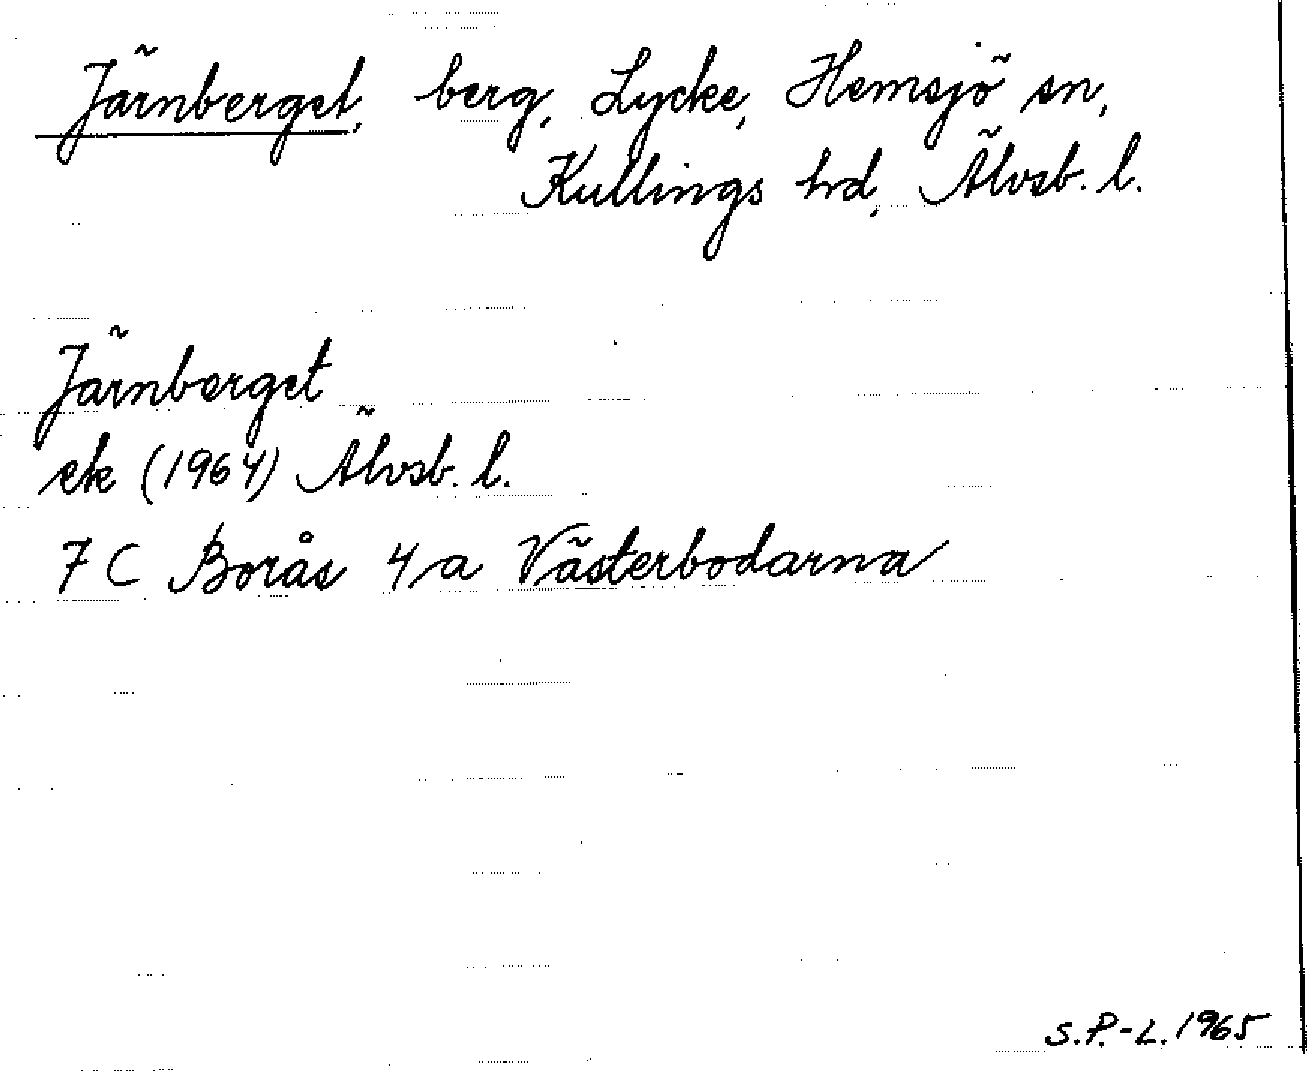 Järnberget, berg, Lycke, Hemsjö sn,
Kullings hd, Älvsb. l.
Järnberget
ek (1964) Älvsb. l.
7 C Borås 4 a Västerbodarna
S.P.-L. 1965